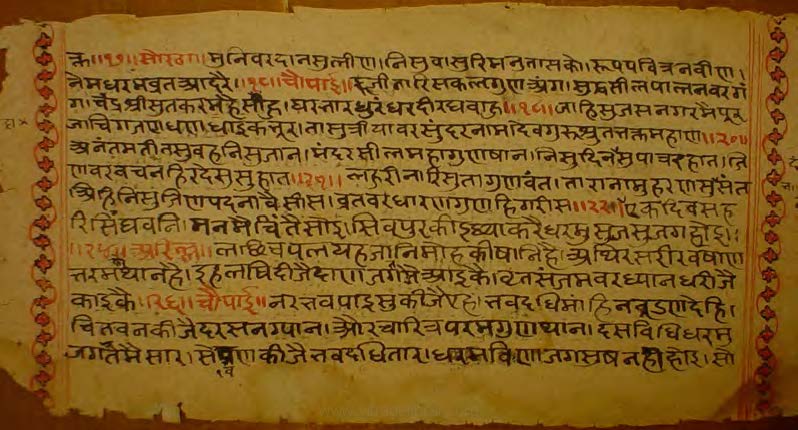 क्त।।१७।।सोरठा।मुनिवरदानसुलीण।निसुवासुरिमनुतासके।रूपपवित्रनवीण।
नेमधरमव्रतआदरै।।१८।।चौपाई।।दूजीनारिसकलगुणअंग।सुद्धसीलपालनवरगं
ग।चंदश्रीसुतकरमैहसीह।घरनारधुरंधरदीरघवाह।।१९।।जाहिसुजसनगरमैपूर
जाचिगजणधण।धाइकनूर।तासुत्रीयावरसुंदरनाम।देवगुरुश्रुतत्तक्तमहाण।।२०।।
अनंतमतीतसुवहनिसुजान।मंदरसीलमहागुणषान।निसुदिनसुपाचदहात।जि
णवरवचनहिरदैससुहात।।२१।।लहुरीनारिसुतागुणवंत।तारानामुहरणसुसंत
श्रीहनिसुंत्रिणपदनावैसीस।व्रतवरधारणगुणहिगरीस।।२२।।एकदिवसह
रिसिंघवनि।मनमैचिंतैसोइ।सिवपुरकीइछ्याकरैधरमुसुजसुजगहोइ।।
।।२३।।अरिल्ल।।लाछिचपलयहजानिमोहकीषानिहै।अथिरसरीरवषाण
त्तरमथानहै।इहलषिदीजैदाणजगमैआइकै।व्रतसंजमवरध्यानधरीजै
काइकै।।२४।।चौपाई।।नरत्तवपाइसुकीजैएह।त्तवदधिमांहिनबूडणदेहि।
चितवनकीजैदरसनग्यान।औरचारित्रपरमगुणथान।दसविधिधरम
जगतमैसार।सेवणकीजैत्तवदधितार।धरमविणाजगसुषनहीहोइ।सो